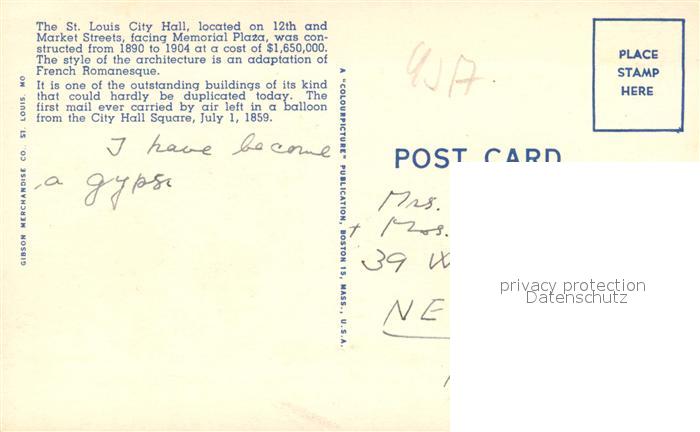 The St. Louis City Hall, located on 12th and
Market Streets, facing Memorial Plaza, was con-
structed from 1890 to 1904 at a cost of $1,650,000.
The style of the architecture is an adaptation of
French Romanesque.
It is one of the outstanding buildings of its kind
that could hardly be duplicated today. The
first mail ever carried by air left in a balloon
from the City Hall Square, July 1, 1859.
I have become
a gypsi
GIBSON MERCHANDISE CO. ST. LOUIS, MO
A "COLOURPICTURE" PUBLICATION, BOSTON 15, MASS., U.S.A.
PLACE
STAMP
HERE
POST CARD
Mrs.
+ Mos.
39 W
NE
privacy protection
Datenschutz